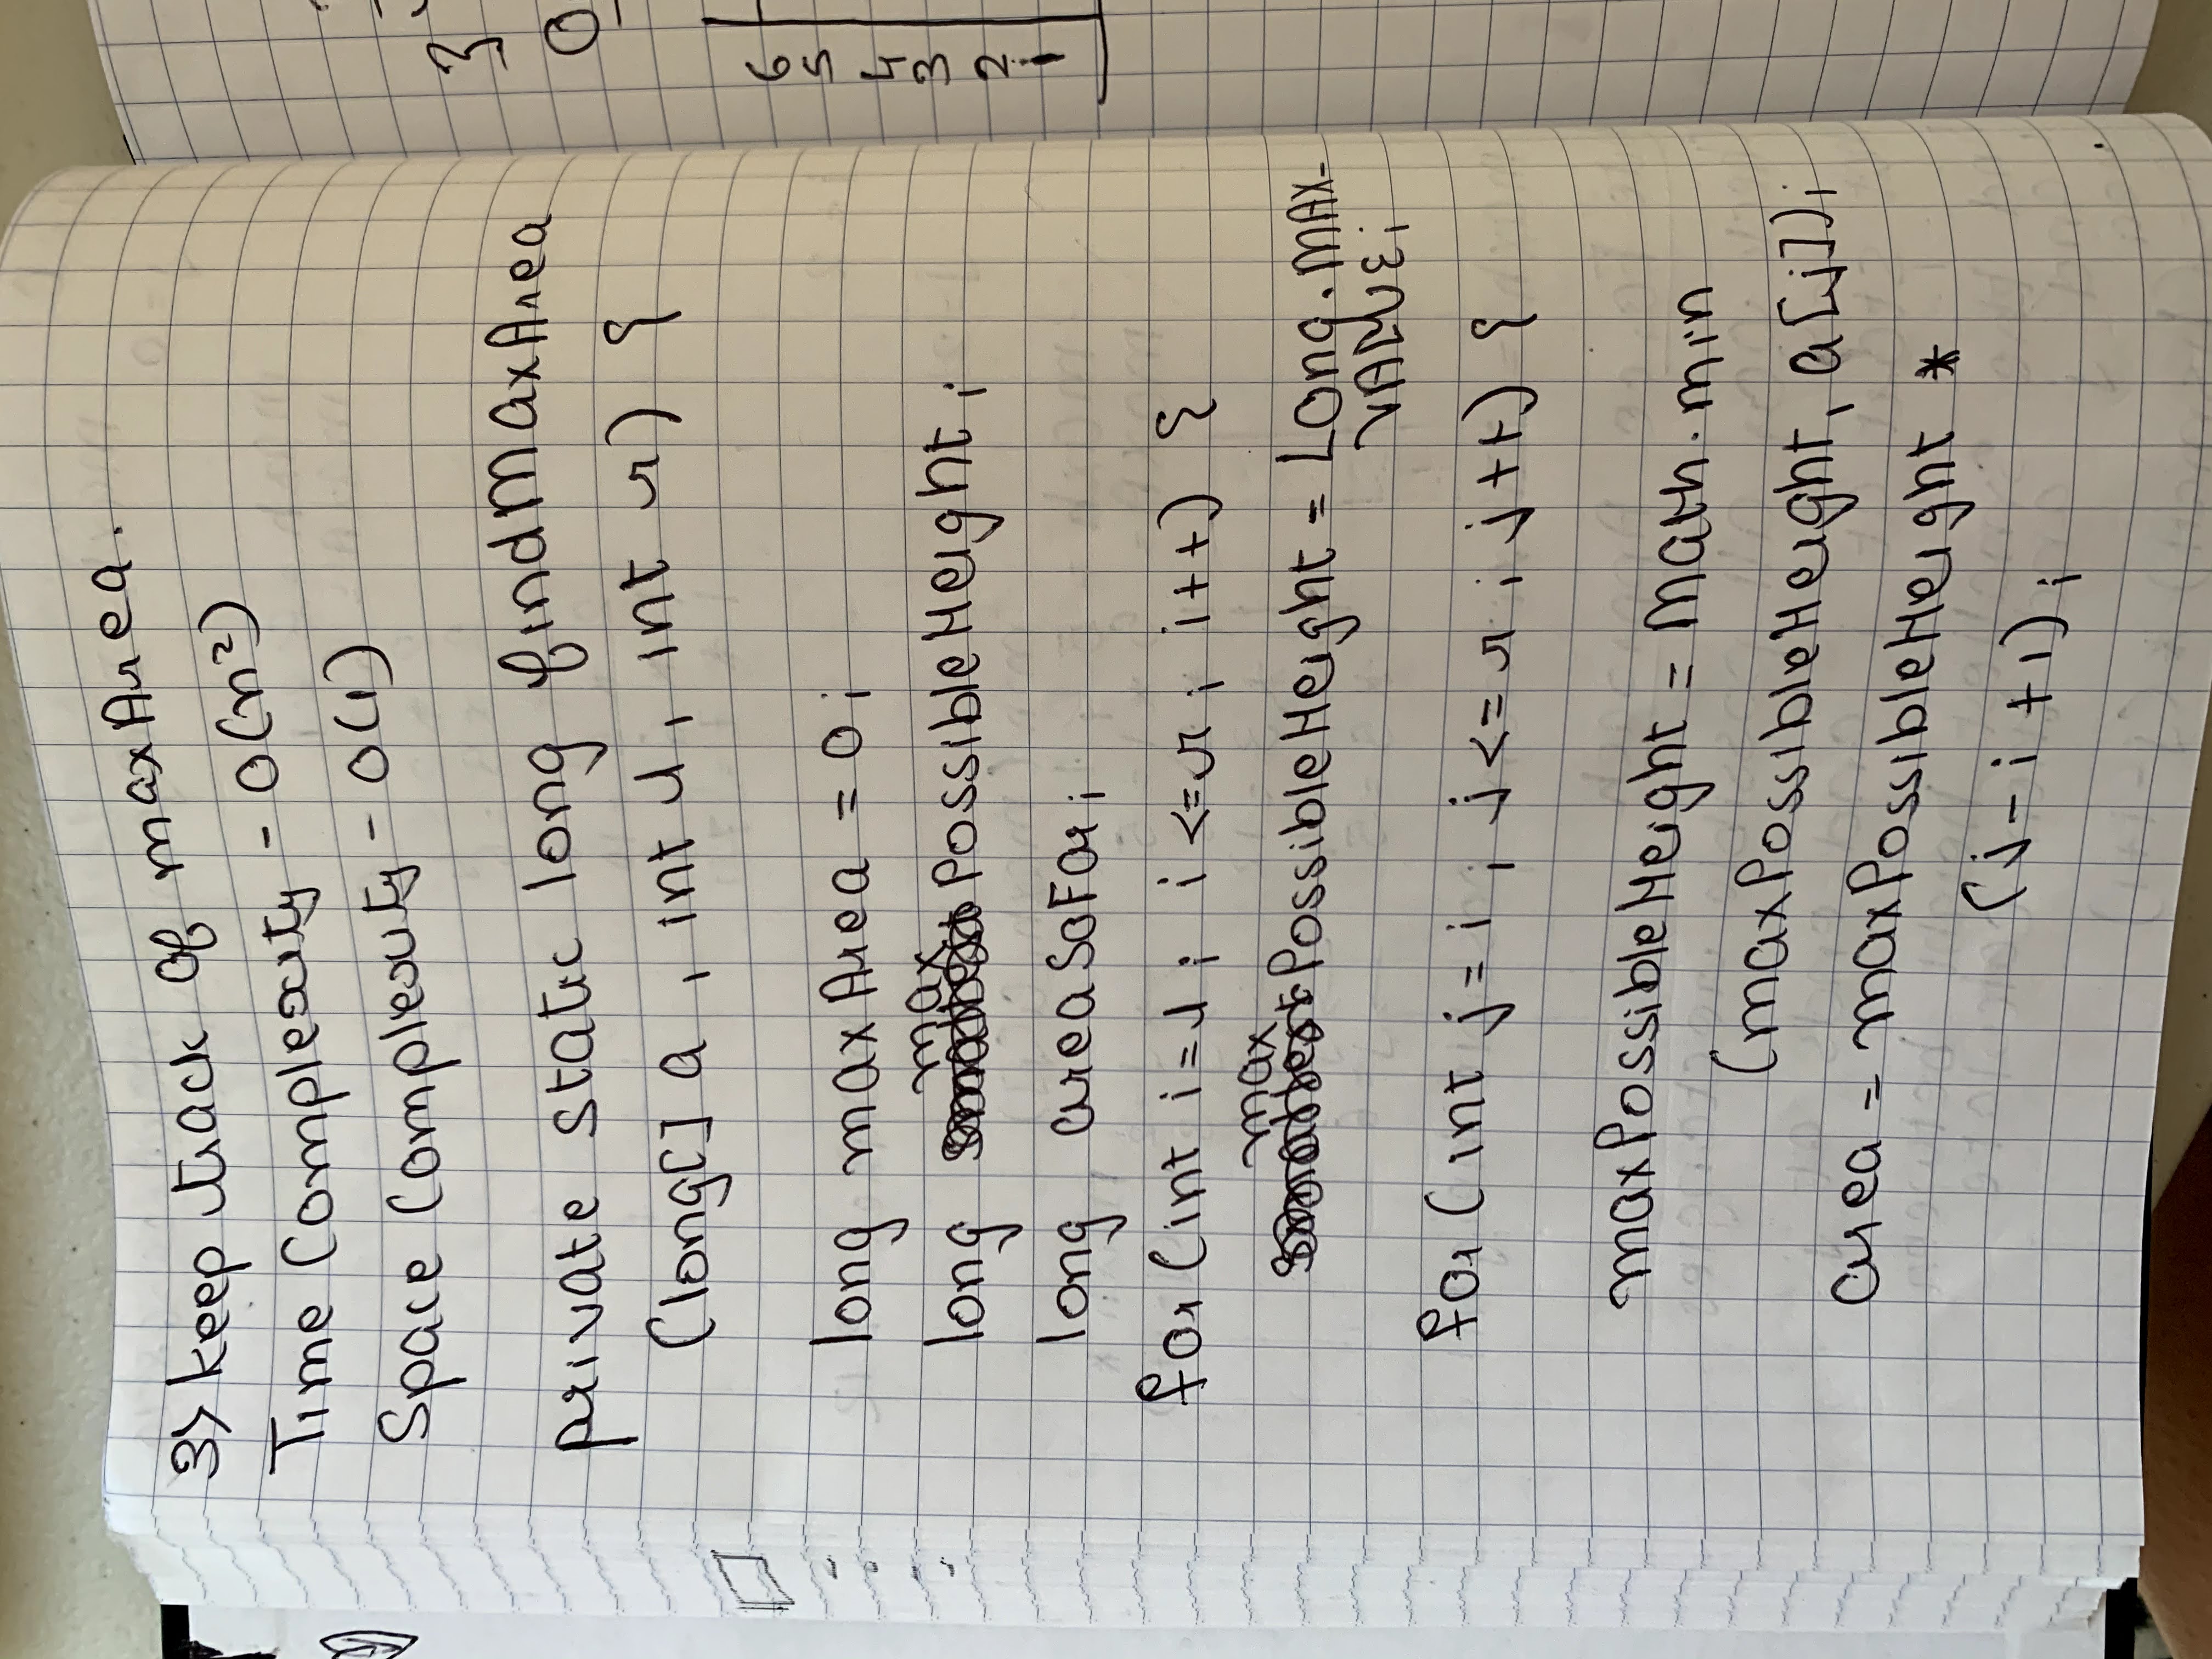 3> keep track of maxArea.
Time Complexity - O(n²)
Space Complexity - O(1)
private static long findMaxArea
(long[] a , int l, int r) {
long maxArea = 0;
long max PossibleHeight;
long areaSoFar;
for (int i=l; i <=r; i++) {
max PossibleHeight = Long.MAX_
VALUE;
for (int j=i ; j<=r ; j++) {
maxPossibleHeight = Math.min
(maxPossibleHeight, a[j]);
area = maxPossibleHeight *
(j-i +1);
}
0
6
5
4
3
2
1